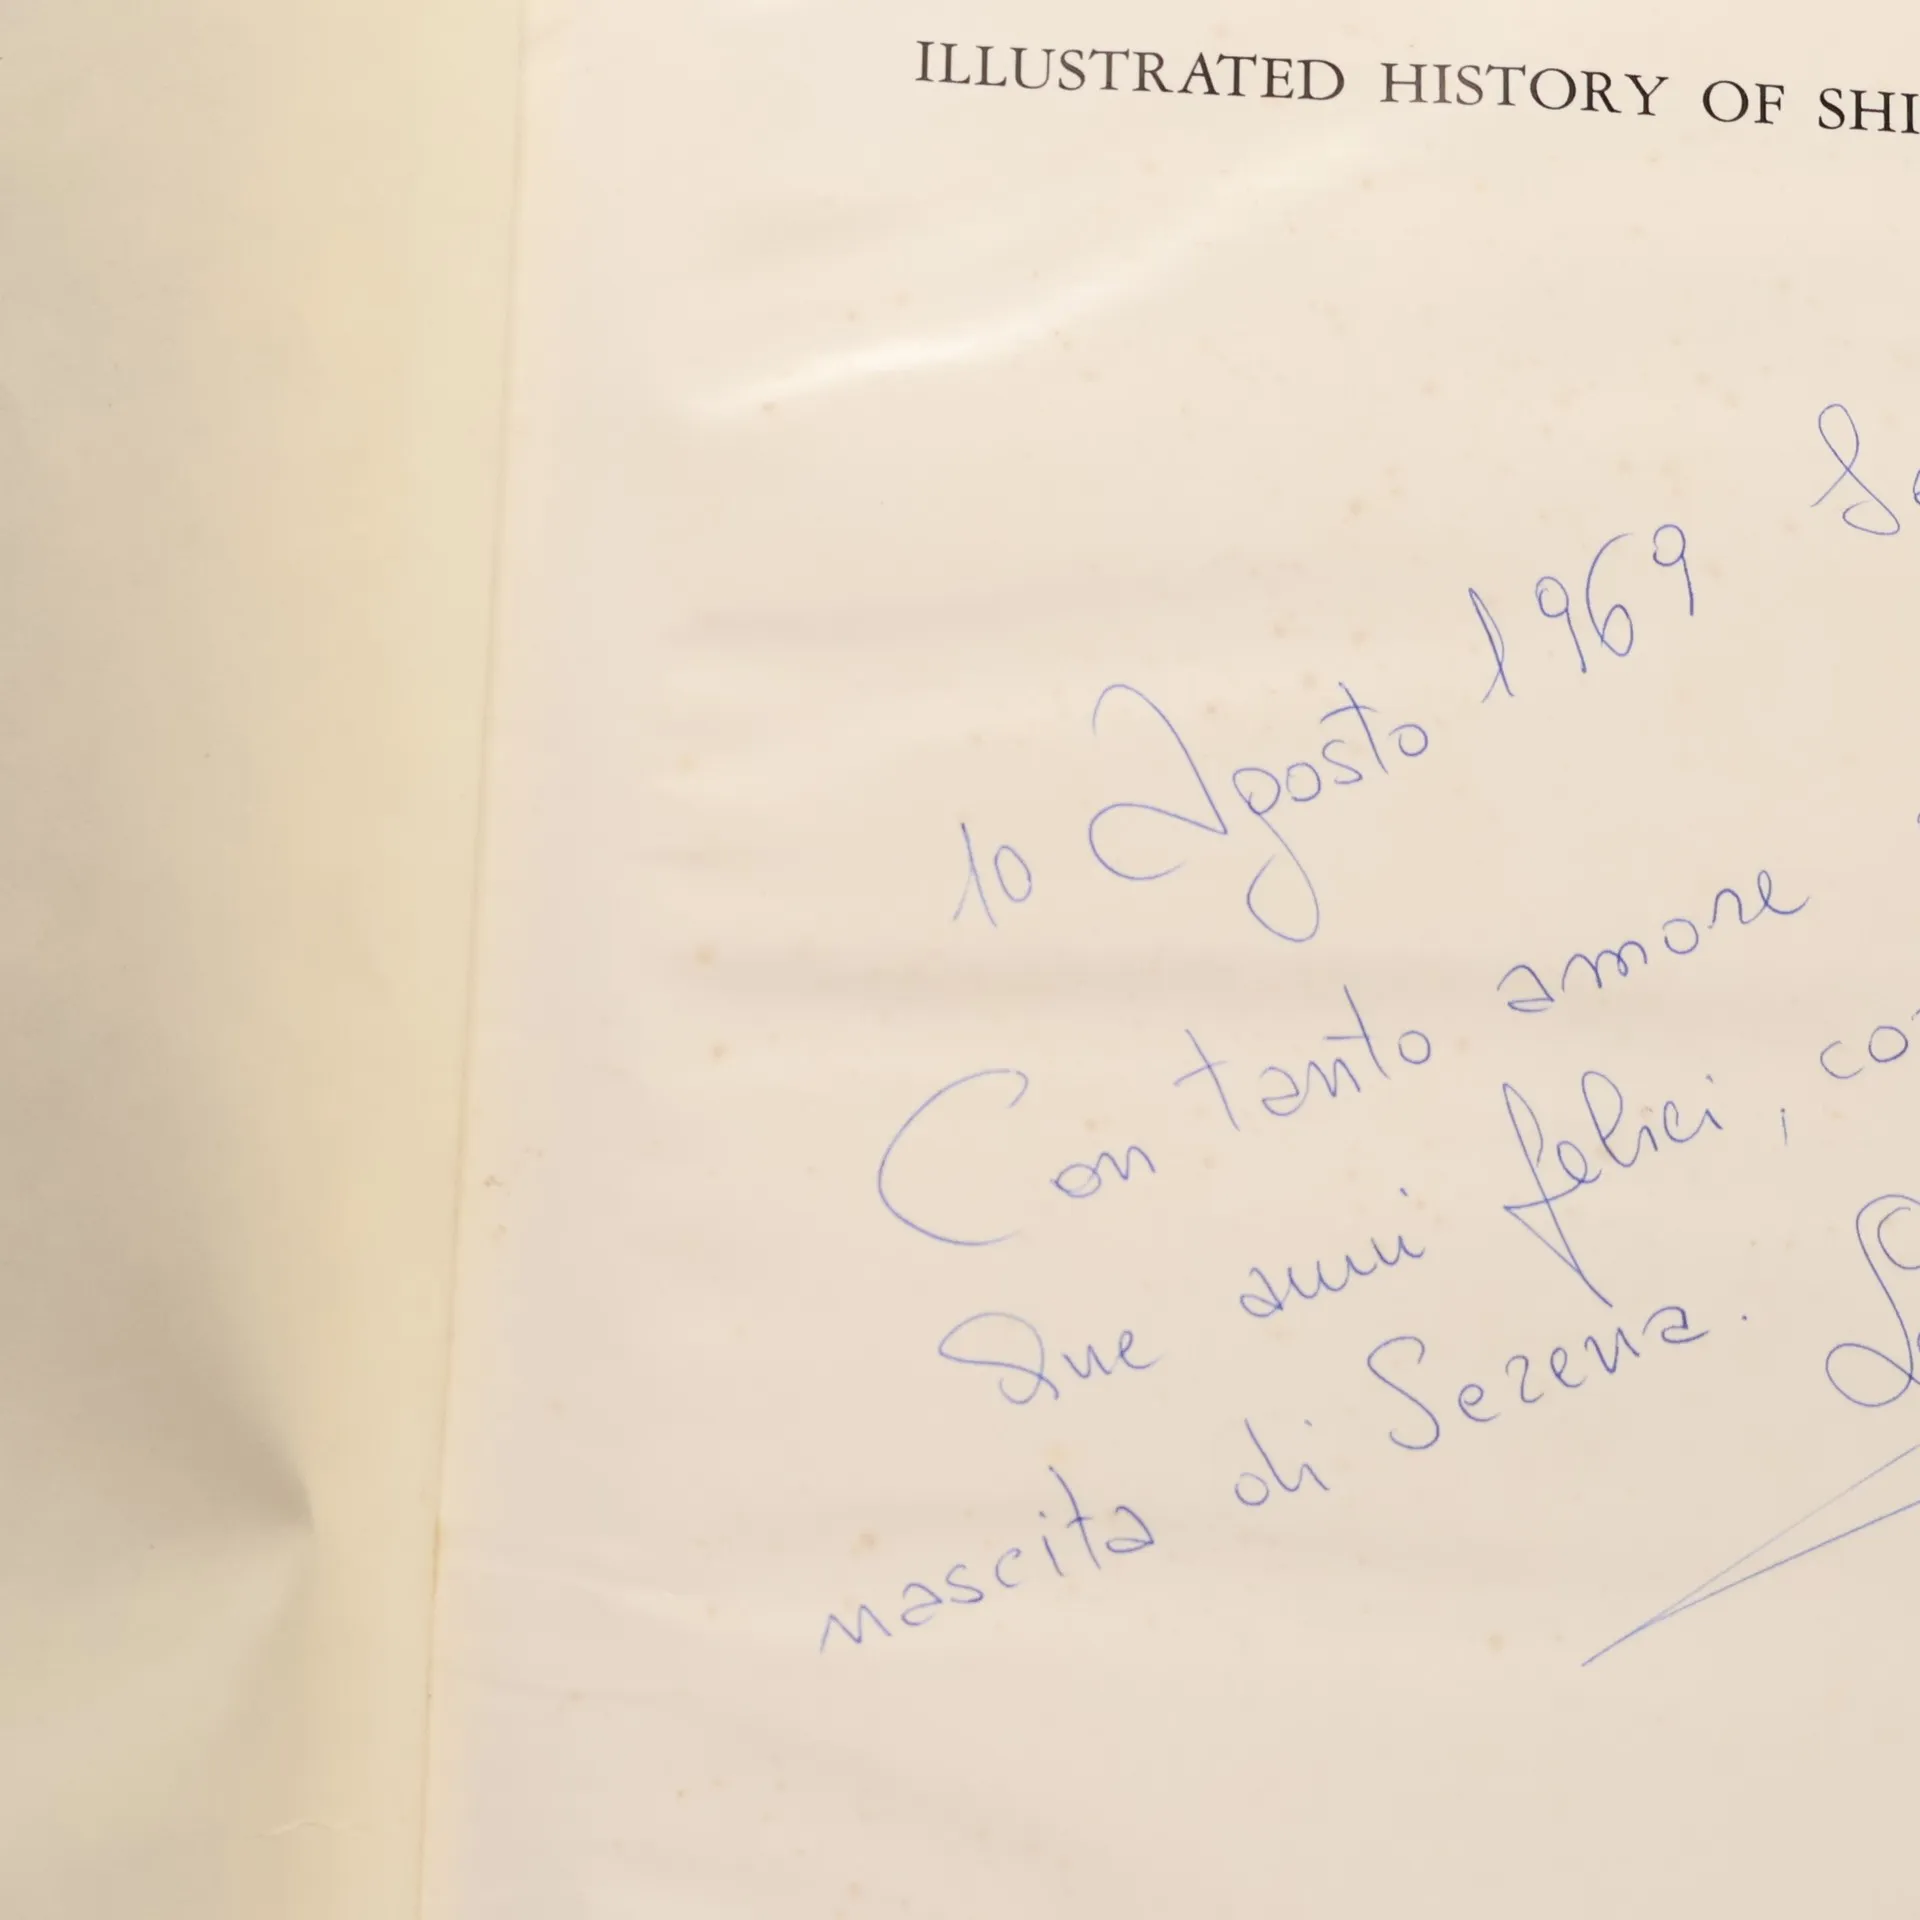 ILLUSTRATED HISTORY OF SHI
10 Agosto 1969
Con tanto amore
due anni felici, co
nascita di Serena.